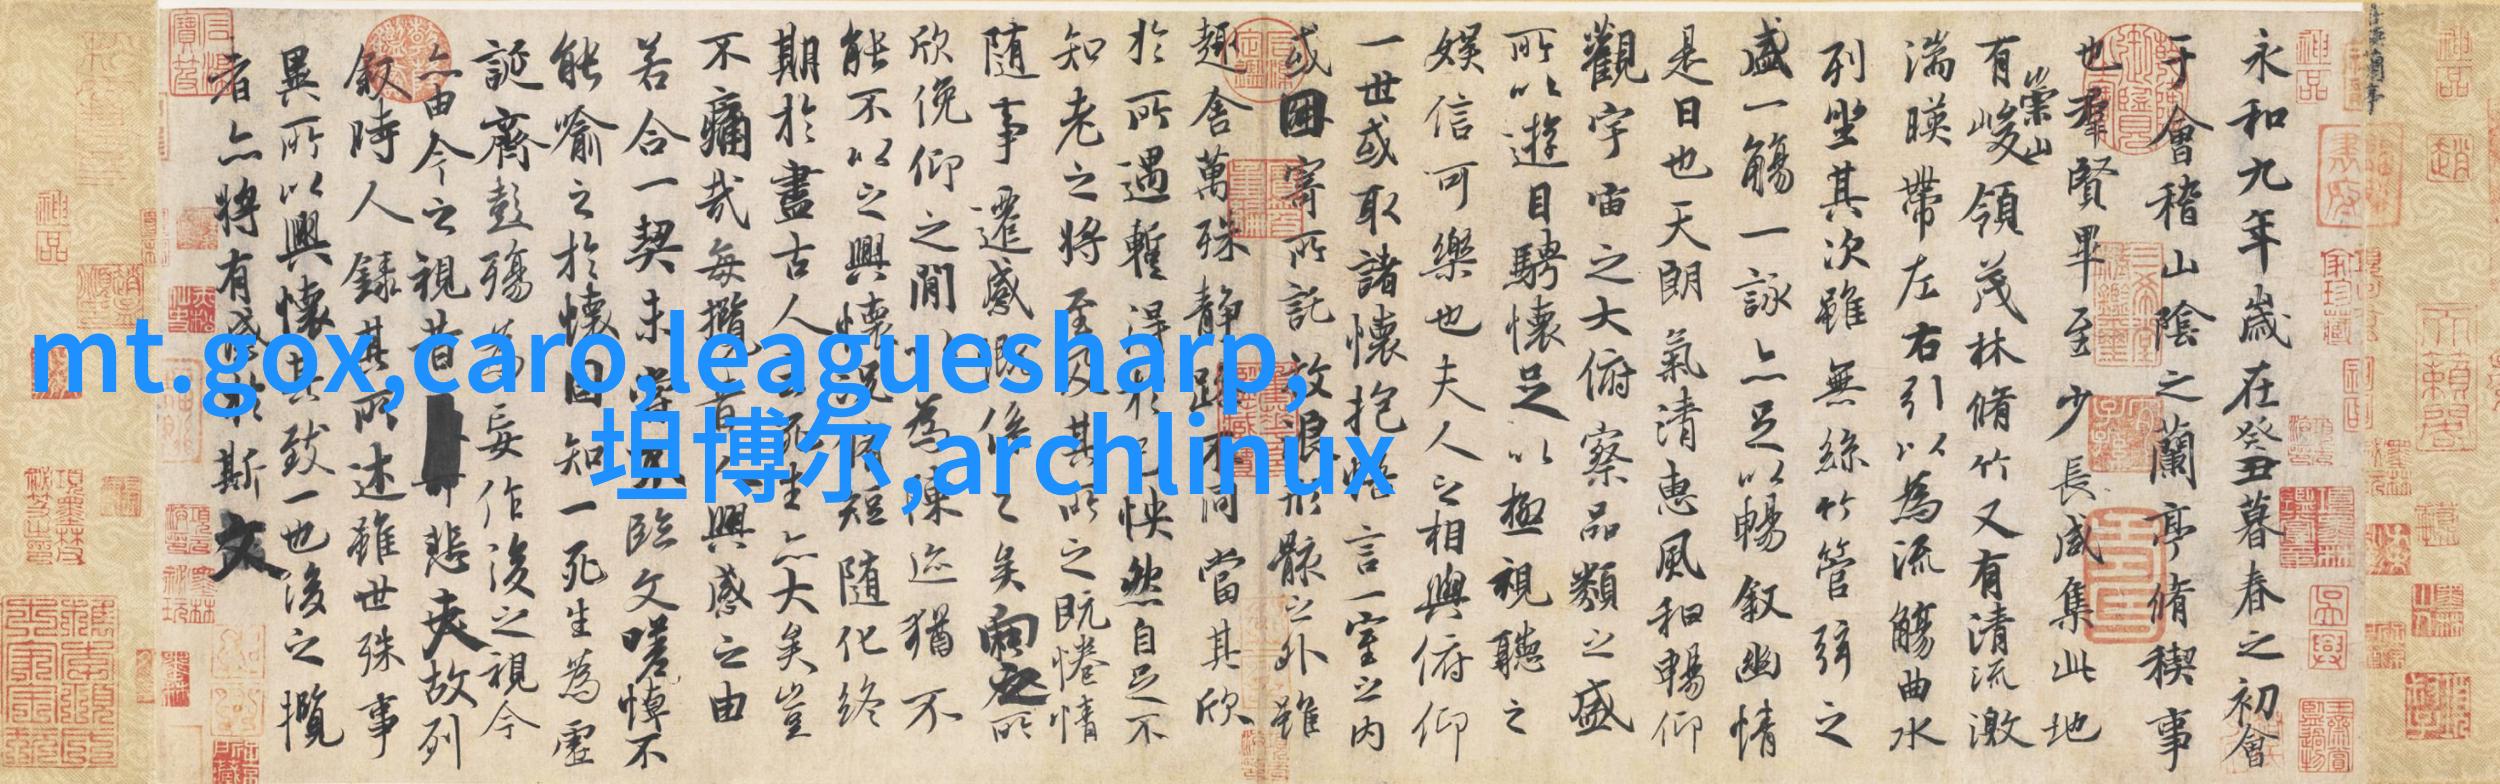 永和九年歲在癸丑暮春之初會
于會稽山陰之蘭亭脩稧事
也羣賢畢至少長咸集此地
有崇山峻領茂林脩竹又有清流激
湍暎帶左右引以為流觴曲水
列坐其次雖無絲竹管弦之
盛一觴一詠亦足以暢敘幽情
是日也天朗氣清惠風和暢仰
觀宇宙之大俯察品類之盛
所以遊目騁懷足以極視聽之
娛信可樂也夫人之相與俯仰
一世或取諸懷抱悟言一室之內
或因寄所託放浪形骸之外雖
趣舍萬殊靜躁不同當其欣
於所遇暫得於己怏然自足不
知老之將至及其所之既惓情
隨事遷感慨係之矣向之所
欣俛仰之閒以為陳迹猶不
能不以之興懷況脩短隨化終
期於盡古人云死生亦大矣豈
不痛哉每攬昔人興感之由
若合一契未嘗不臨文嗟悼不
能喻之於懷固知一死生為虛
誕齊彭殤為妄作後之視今
亦由今之視昔悲夫故列
敘時人錄其所述雖世殊事
異所以興懷其致一也後之攬
者亦將有感於斯文
mt.gox,caro,leaguesharp,
坦博尔,archlinux